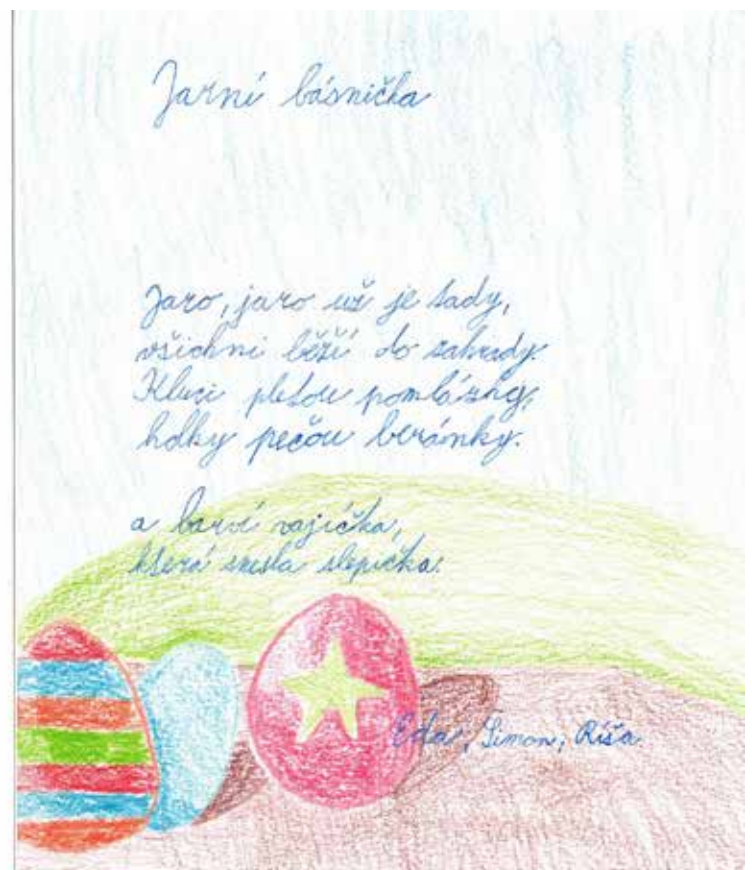 Jarní básnička
Jaro, jaro už je tady,
všichni běží do zahrady.
Kluci pletou pomlázky,
holky pečou beránky.
a barví vajíčka,
která snesla slepička.
Eda, Šimon, Ríša